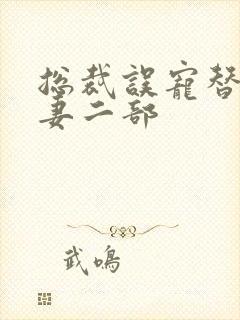 总裁误宠替
妻二部
武鸣